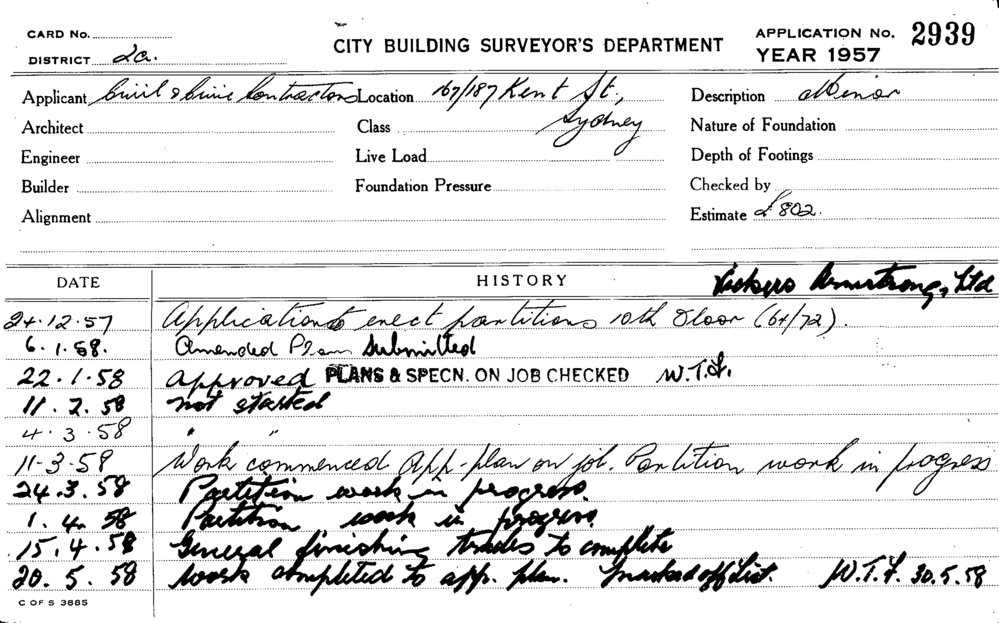 CARD No.
DISTRICT 2a.
CITY BUILDING SURVEYOR'S DEPARTMENT
APPLICATION No. 2939
YEAR 1957
Applicant Civil & Civic Contractors Location 167/187 Kent St., Sydney Description Minor
Architect Class Nature of Foundation
Engineer Live Load Depth of Footings
Builder Foundation Pressure Checked by
Alignment Estimate £802.
DATE HISTORY Vickers Armstrong, Ltd
24.12.57 Application to erect partitions 10th Floor (64/72).
6.1.58. Amended Plan Submitted
22.1.58 Approved PLANS & SPECN. ON JOB CHECKED W.T.F.
11.2.58 not started
4.3.58 " "
11-3-58 Work commenced App. plan on job. Partition work in progress
24.3.58 Partition work in progress.
1.4.58 Partition work in progress
15.4.58 General finishing trades to complete
20.5.58 Work completed to app. plan. Marked off List. W.T.F. 30.5.58
C OF S 3885